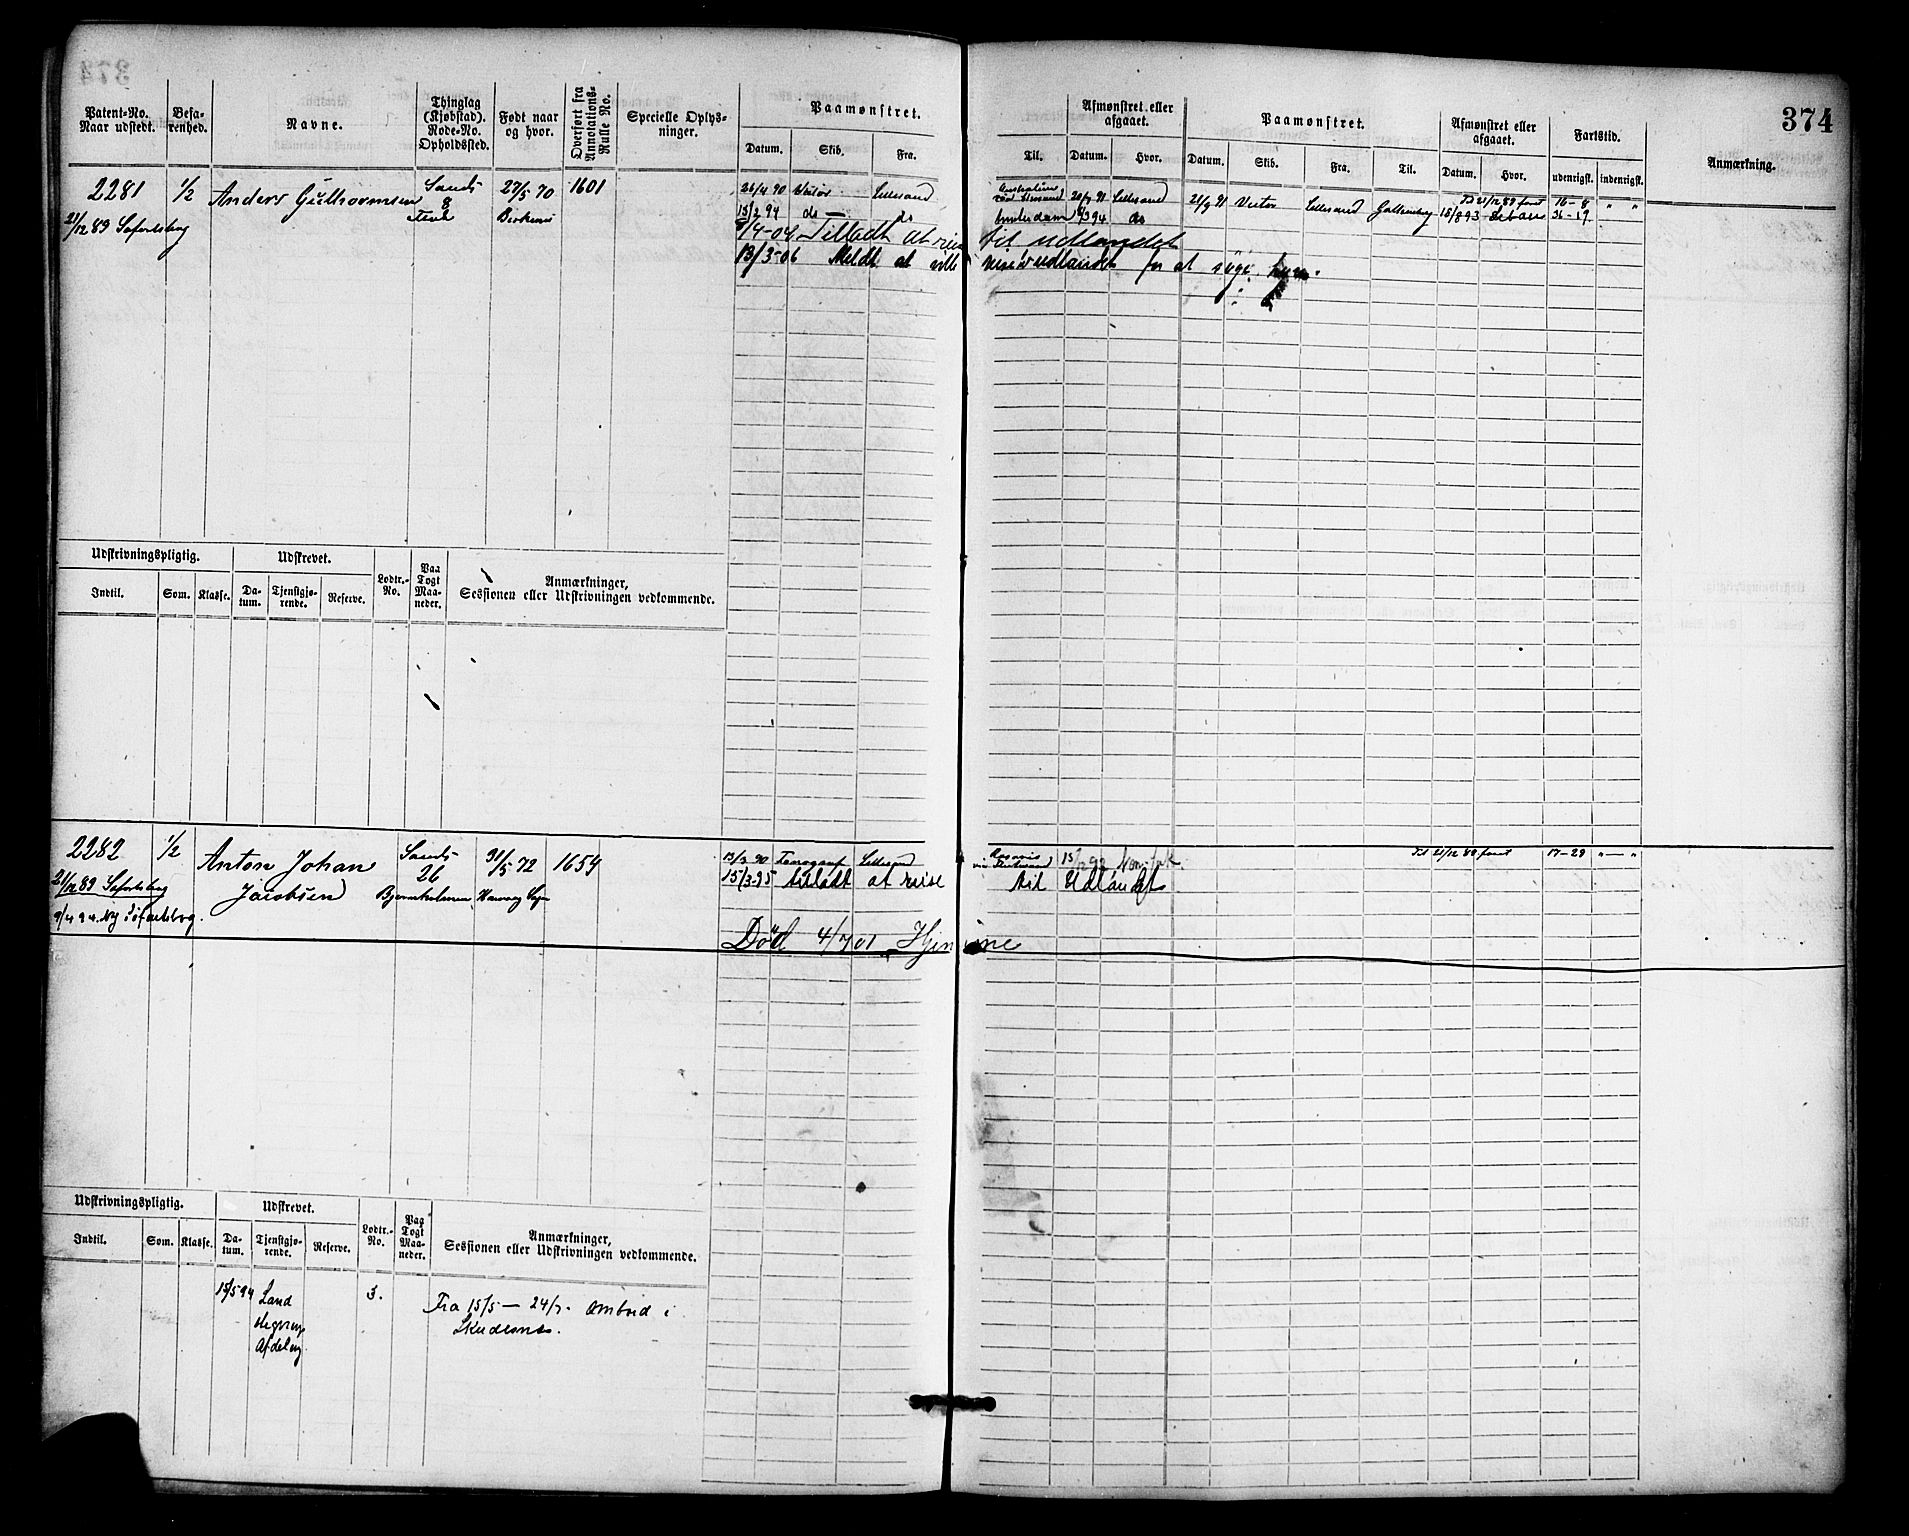 374
Patent-No. Naar udstedt.
Befarenhed.
Navne.
Thinglag (Kjøbstad). Rode-No. Opholdssted.
Født naar og hvor.
Overført fra Annotations-Rulle No.
Specielle Oplysninger.
Paamønstret.
Datum. Skib. Fra. Til.
Afmønstret eller afgaaet.
Datum. Hvor.
Paamønstret.
Datum. Skib. Fra. Til.
Afmønstret eller afgaaet.
Datum. Hvor.
Fartstid.
udenrigsk. indenrigsk.
Anmærkning.
2281 1/2 Anders Gulhormsen Sands 27/5 70 1601
8 Birkenes
21/12 89 Søfartsbog
26/4 90 Victor Lillesand Australien 20/9 91 Lillesand 21/9 91 Victor Lillesand Gottenborg
Til 21/12 89 faret 16-8 " "
15/2 94 do — do Amsterdam do 18/8 93 36-19
8/4-04 Tilladt at reise til udlandet
13/3-06 Meldt at ville reise udlandet for at søge hyre.
Udskrivningspligtig. Udskrevet. Lodtr.-No. Paa Togt Maaneder. Anmærkninger, Sessionen eller Udskrivningen vedkommende.
Indtil. Som. Klasse. Datum. Tjenstgjørende. Reserve.
2282 1/2 Anton Johan Jacobsen Sands 31/5 72 1654
26
21/12 89 Søfartsbog
9/4 94 Ny Søfartsbog.
13/3 90 Lillesand
Til 21/12 89 faret 17-29 " — "
15/3-95 tilladt at reise til Udlandet
Død 4/7 01 Hjemme
Udskrivningspligtig. Udskrevet. Lodtr.-No. Paa Togt Maaneder. Anmærkninger, Sessionen eller Udskrivningen vedkommende.
Indtil. Som. Klasse. Datum. Tjenstgjørende. Reserve.
15/5 94 Land 3. Fra 15/5 — 24/7. ombord i
Skudesnes.
Afdeling